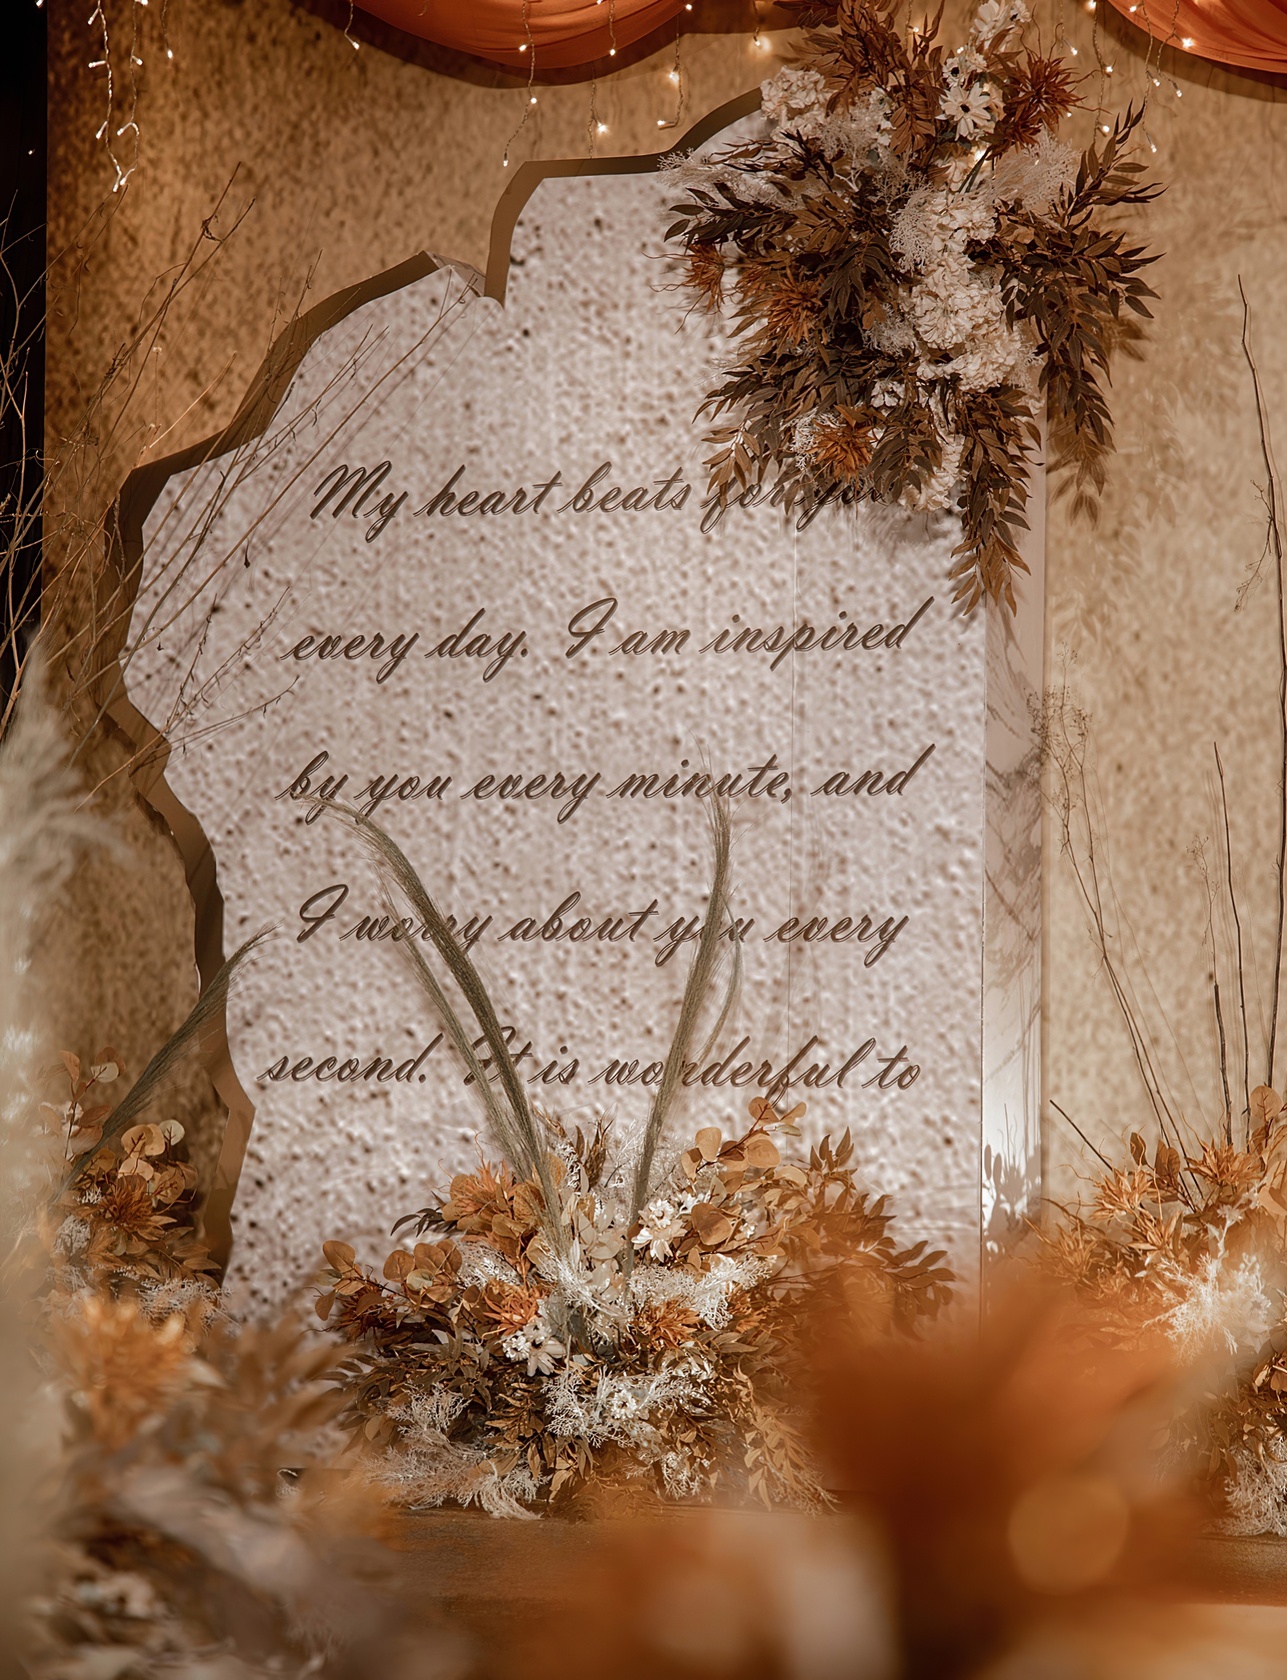 My heart beats for you
every day. I am inspired
by you every minute, and
I worry about you every
second. It is wonderful to